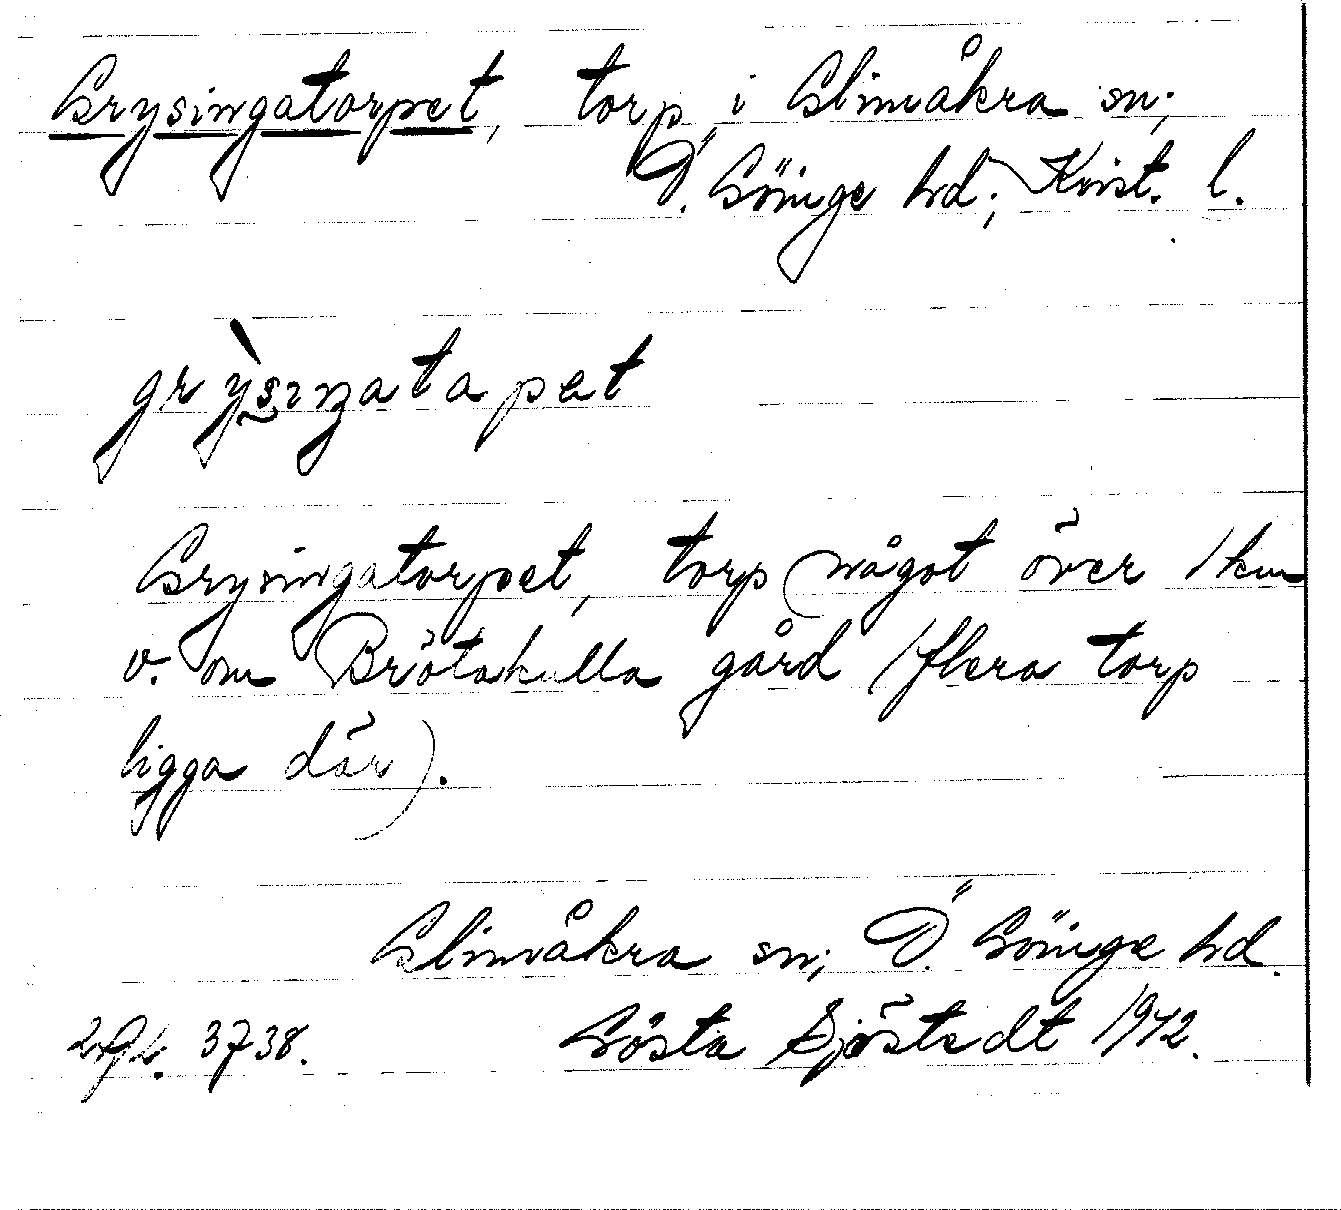 Grysingatorpet, torp i Glimåkra sn;
Ö. Göinge hd; Krist. l.
grỳsiŋatapet
Grysingatorpet, torp något över 1 km
v. om Brötakulla gård (flera torp
ligga där).
Glimåkra sn; Ö. Göinge hd.
3738. Gösta Sjöstedt 1942.